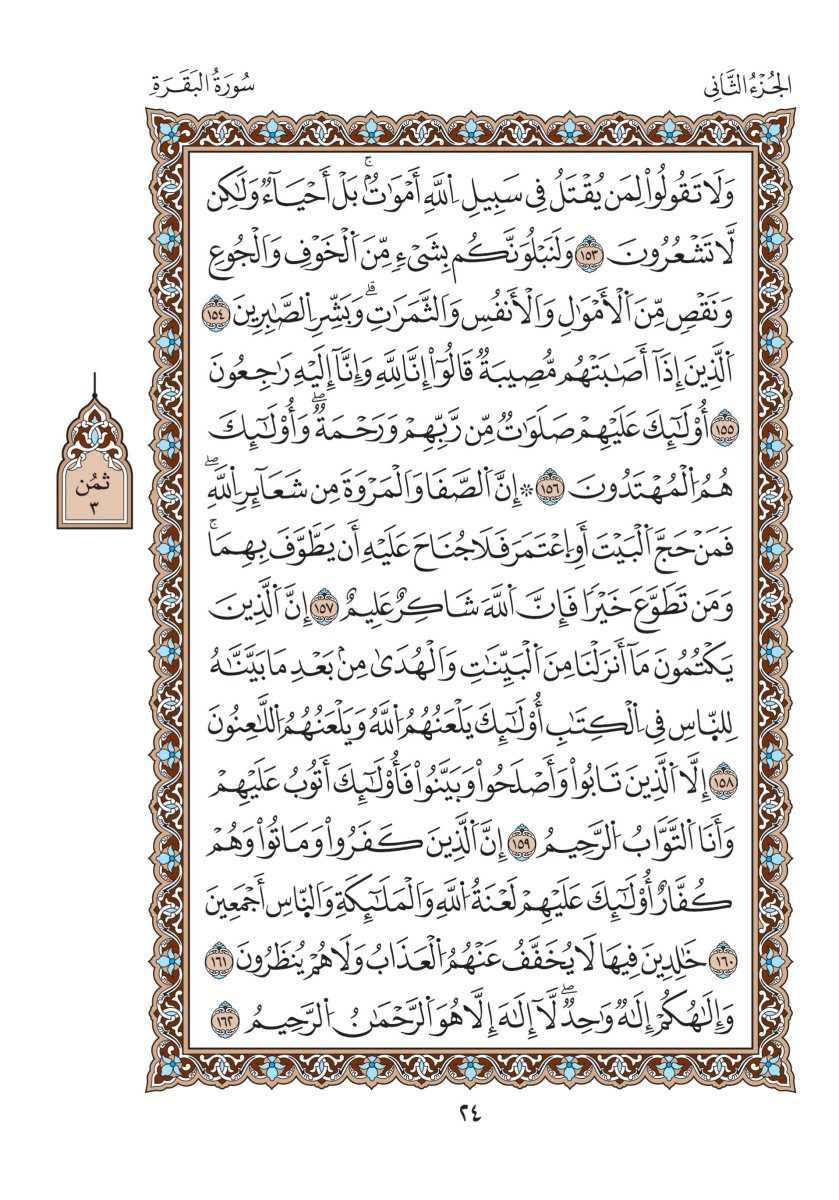 الجُزْءُ الثَّانِي
سُورَةُ البَقَرَةِ
وَلَا تَقُولُواْ لِمَن يُقْتَلُ فِي سَبِيلِ اِ۬للَّهِ أَمْوَٰتُۢۚ بَلْ أَحْيَآءٞ وَلَٰكِن
لَّا تَشْعُرُونَ ١٥٣ وَلَنَبْلُوَنَّكُم بِشَيْءٖ مِّنَ اَ۬لْخَوْفِ وَالْجُوعِ
وَنَقْصٖ مِّنَ اَ۬لْأَمْوَٰلِ وَالْأَنفُسِ وَالثَّمَرَٰتِۗ وَبَشِّرِ اِ۬لصَّٰبِرِينَ ١٥٤
اَ۬لَّذِينَ إِذَآ أَصَٰبَتْهُم مُّصِيبَةٞ قَالُوٓاْ إِنَّا لِلَّهِ وَإِنَّآ إِلَيْهِ رَٰجِعُونَ
١٥٥ أُوْلَٰٓئِكَ عَلَيْهِمْ صَلَوَٰتٞ مِّن رَّبِّهِمْ وَرَحْمَةٞۖ وَأُوْلَٰٓئِكَ
هُمُ اُ۬لْمُهْتَدُونَ ١٥٦ ۞ إِنَّ اَ۬لصَّفَا وَالْمَرْوَةَ مِن شَعَآئِرِ اِ۬للَّهِۖ
فَمَنْ حَجَّ اَ۬لْبَيْتَ أَوِ اِ۪عْتَمَرَ فَلَا جُنَاحَ عَلَيْهِ أَن يَطَّوَّفَ بِهِمَاۚ
وَمَن تَطَوَّعَ خَيْرٗا فَإِنَّ اَ۬للَّهَ شَاكِرٌ عَلِيمٌ ١٥٧ إِنَّ اَ۬لَّذِينَ
يَكْتُمُونَ مَآ أَنزَلْنَا مِنَ اَ۬لْبَيِّنَٰتِ وَالْهُدَىٰ مِنۢ بَعْدِ مَا بَيَّنَّٰهُ
لِلنَّاسِ فِي اِ۬لْكِتَٰبِ أُوْلَٰٓئِكَ يَلْعَنُهُمُ اُ۬للَّهُ وَيَلْعَنُهُمُ اُ۬للَّٰعِنُونَ
١٥٨ إِلَّا اَ۬لَّذِينَ تَابُواْ وَأَصْلَحُواْ وَبَيَّنُواْ فَأُوْلَٰٓئِكَ أَتُوبُ عَلَيْهِمْ
وَأَنَا اَ۬لتَّوَّابُ اُ۬لرَّحِيمُ ١٥٩ إِنَّ اَ۬لَّذِينَ كَفَرُواْ وَمَاتُواْ وَهُمْ
كُفَّارٌ أُوْلَٰٓئِكَ عَلَيْهِمْ لَعْنَةُ اُ۬للَّهِ وَالْمَلَٰٓئِكَةِ وَالنَّاسِ أَجْمَعِينَ
١٦٠ خَٰلِدِينَ فِيهَا لَا يُخَفَّفُ عَنْهُمُ اُ۬لْعَذَابُ وَلَا هُمْ يُنظَرُونَ ١٦١
وَإِلَٰهُكُمْ إِلَٰهٞ وَٰحِدٞۖ لَّآ إِلَٰهَ إِلَّا هُوَ اَ۬لرَّحْمَٰنُ اُ۬لرَّحِيمُ ١٦٢
ثُمُن
٣
٢٤